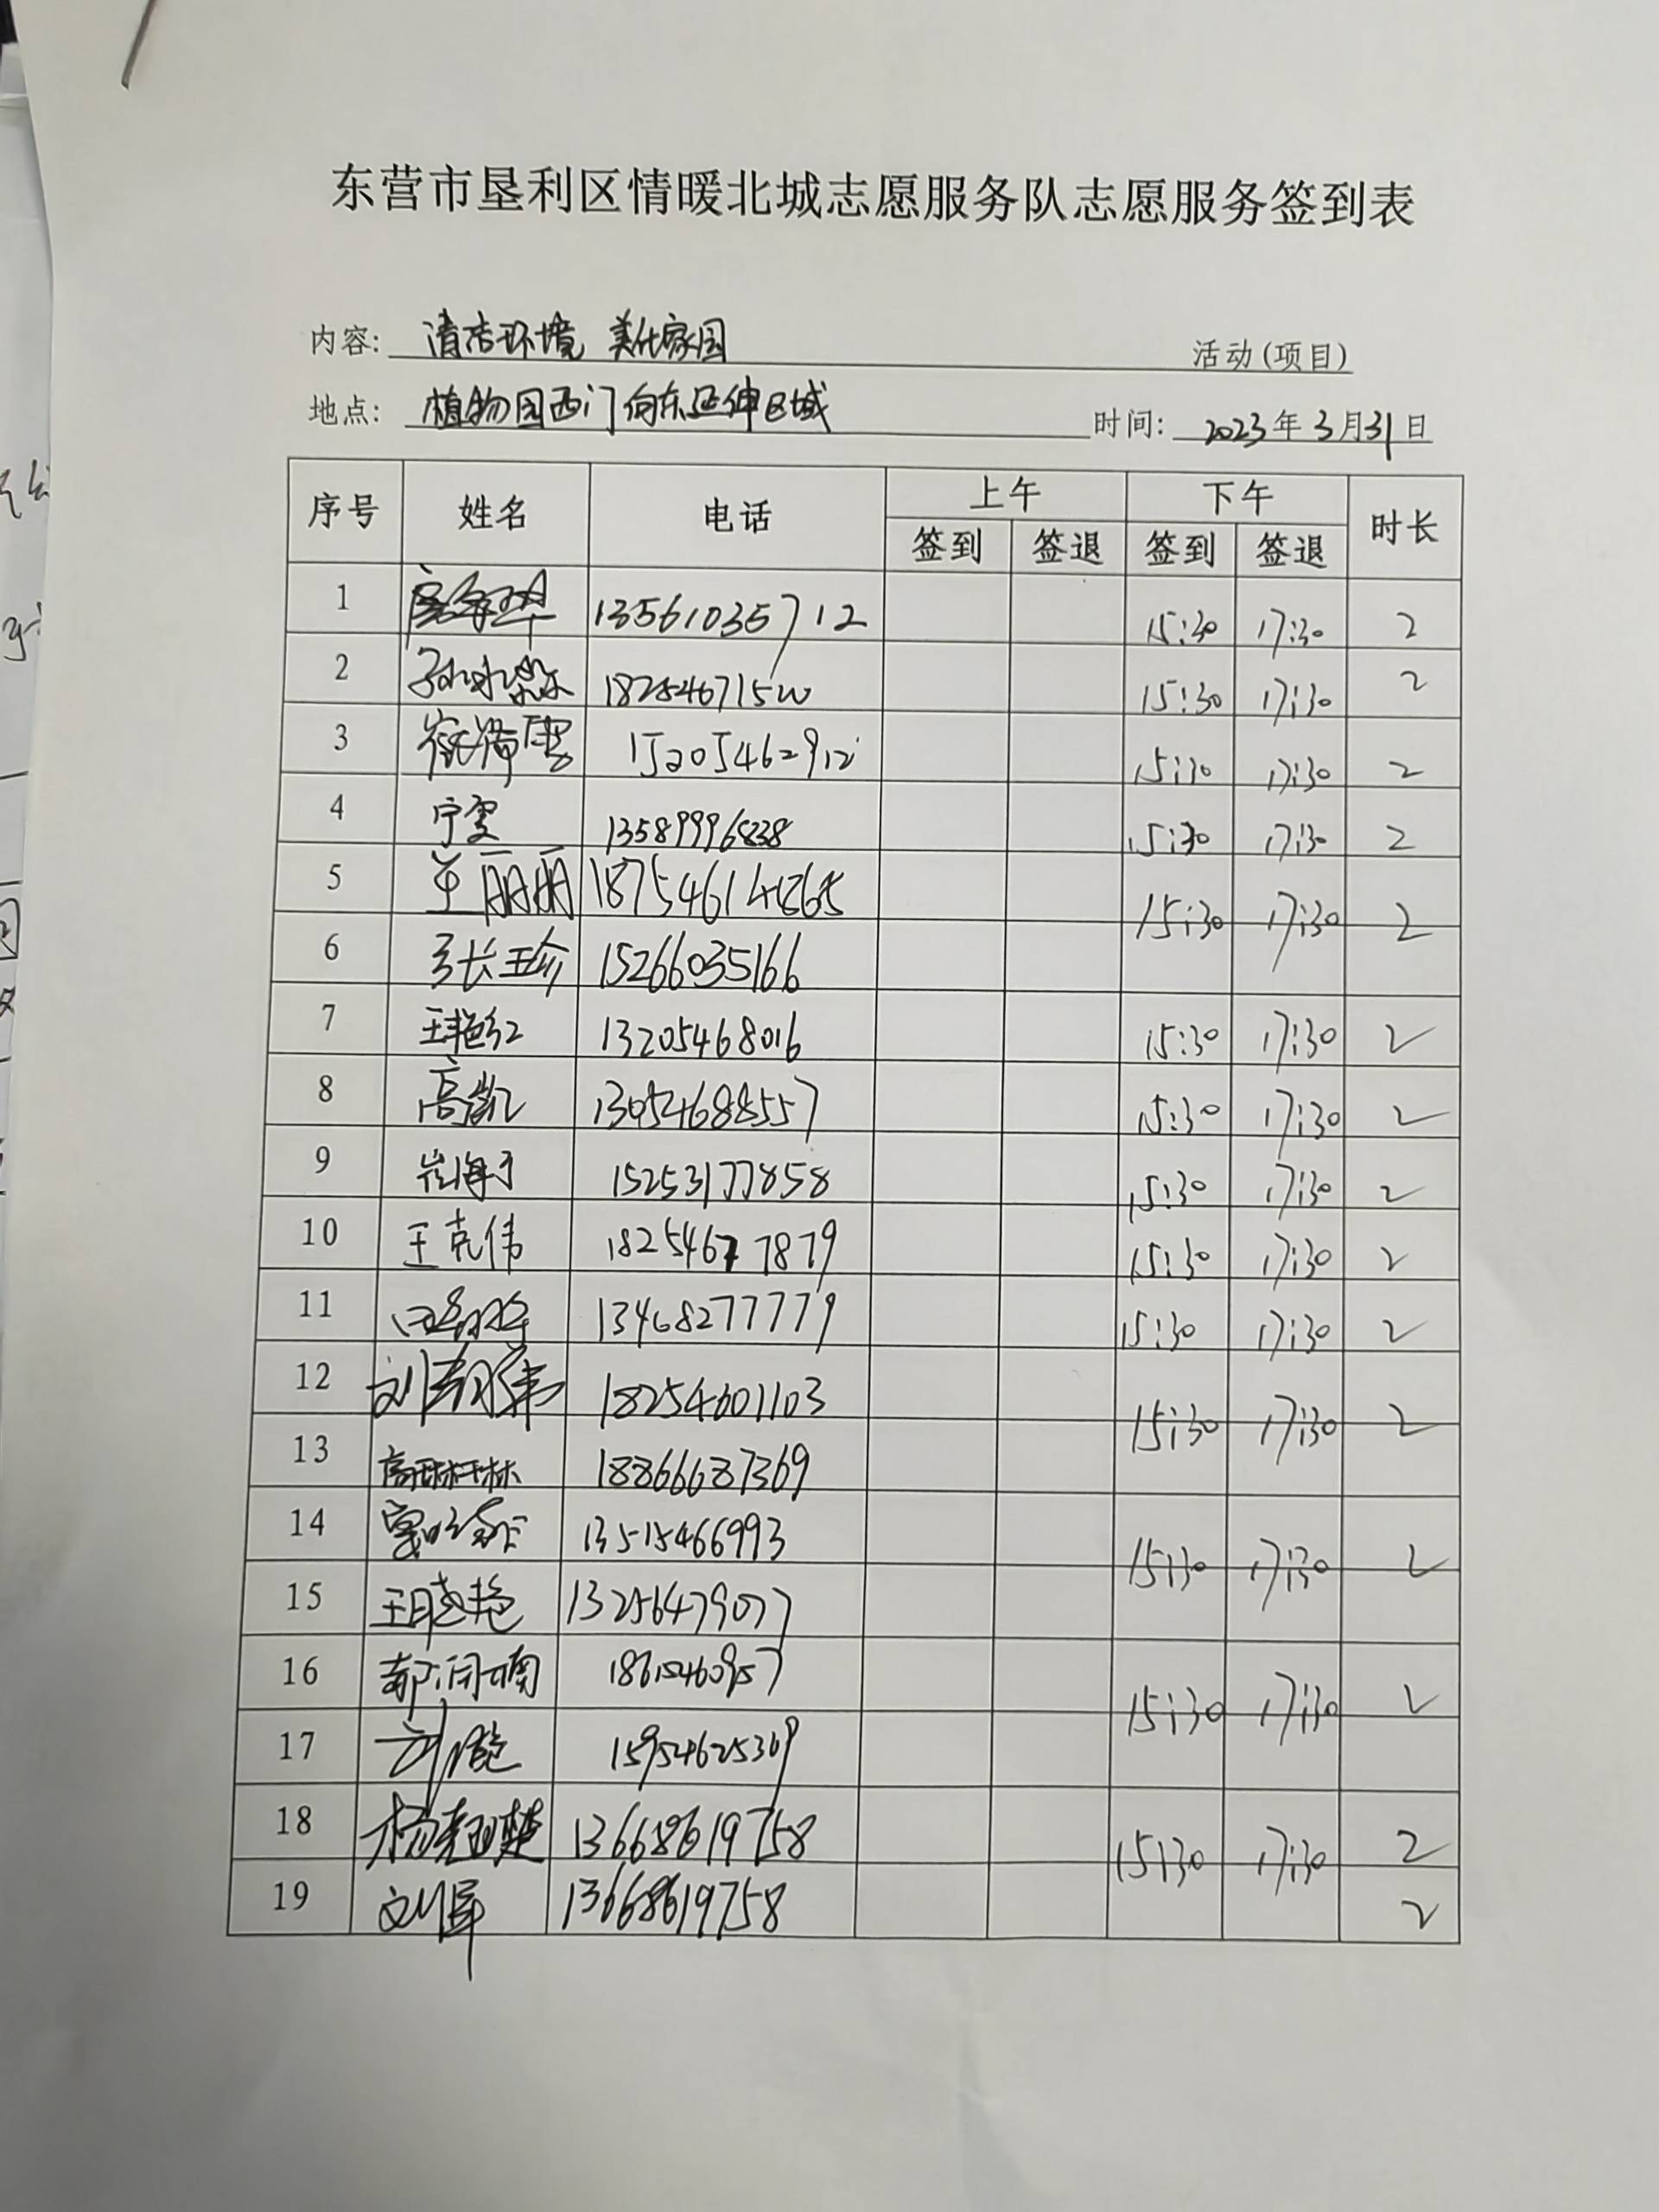 东营市垦利区情暖北城志愿服务队志愿服务签到表
内容: 清洁环境 美化家园 活动(项目)
地点: 植物园西门向东延伸区域 时间: 2023年3月31日
序号 姓名 电话 上午 下午 时长
签到 签退 签到 签退
1 13561035712 15:30 17:30 2
2 15:30 17:30 2
3 15205462912 15:30 17:30 2
4 宁雯 15:30 17:30 2
5 丽丽 15:30 17:30 2
6 张玉珍 15266035166
7 王艳红 13205468016 15:30 17:30 2
8 高凯 15:30 17:30 2
9 崔海 15253177858 15:30 17:30 2
10 王克伟 18254677879 15:30 17:30 2
11 13468277779 15:30 17:30 2
12 18254601103 15:30 17:30 2
13 高琳琳 18866687369
14 13515466993 15:30 17:30 2
15 王晓艳 13256479077
16 15:30 17:30 2
17 15954625369
18 13668619758 15:30 17:30 2
19 刘军 13668619758 2